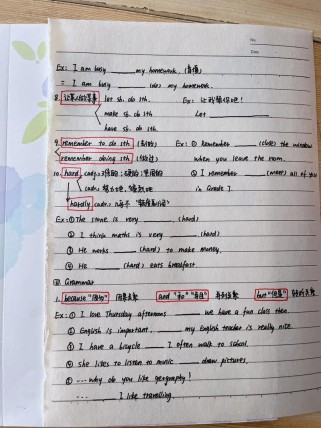 No.
Date
Ex: I am busy ____ my homework. (直情)
= I am busy ____ (do) my homework.
8. 让某人做某事 let sb. do sth. Ex: 让我帮你吧!
make sb. do sth. Let ____
have sb. do sth.
9. remember to do sth. Ex: ① Remember ____ (close) the window
remember doing sth. when you leave the room.
10. hard ② I remember ____ (meet) all of you
in Grade 7.
hardly
Ex: ① The stone is very ____. (hard)
② I think maths is very ____. (hard)
③ He works ____ (hard) to make money.
④ He ____ (hard) eats breakfast.
Grammar
1. because "因为" and "和" but "但是"
Ex: ① I love Thursday afternoons ____ we have a fun class then.
② English is important, ____ my English teacher is really nice.
③ I have a bicycle ____ I often walk to school.
④ she likes to listen to music ____ draw pictures.
⑤ --- why do you like geography?
--- ____ I like travelling.